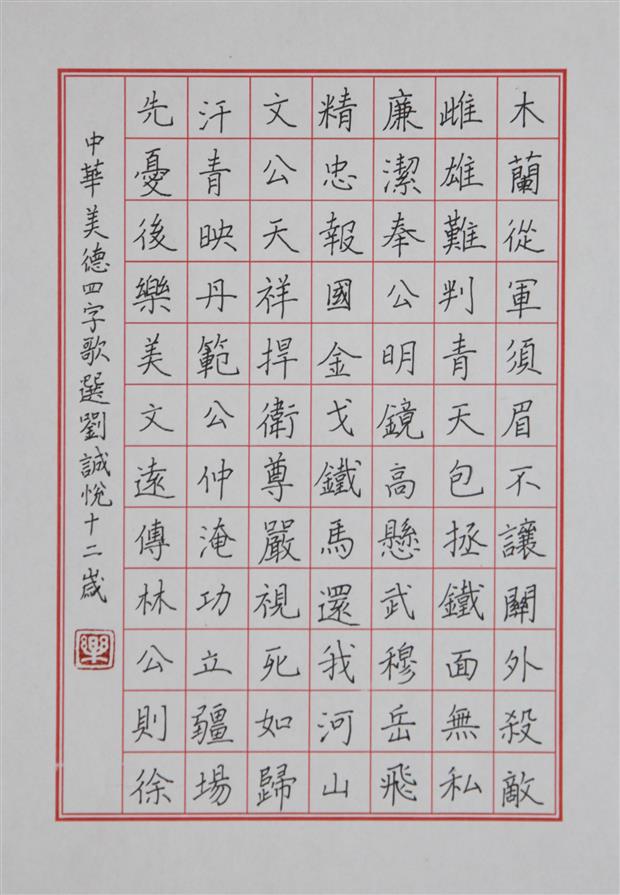 木蘭從軍須眉不讓關外殺敵
雌雄難判青天包拯鐵面無私
廉潔奉公明鏡高懸武穆岳飛
精忠報國金戈鐵馬還我河山
文公天祥捍衛尊嚴視死如歸
汗青映丹範公仲淹功立疆場
先憂後樂美文遠傳林公則徐
中華美德四字歌選劉誠悅十二歲
樂